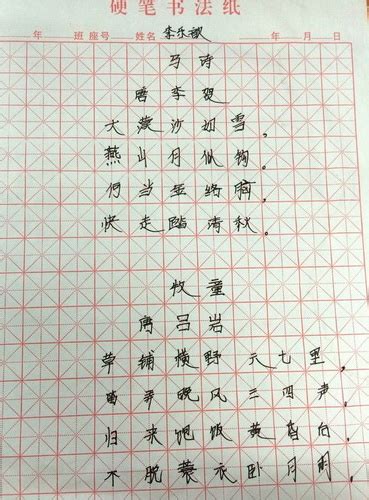 硬笔书法纸
年 班 座号 姓名 李乐 年 月 日
马诗
唐 李贺
大漠沙如雪，
燕山月似钩。
何当金络脑，
快走踏清秋。
牧童
唐 吕岩
草铺横野六七里，
笛弄晚风三四声，
归来饱饭黄昏向，
不脱蓑衣卧月明，